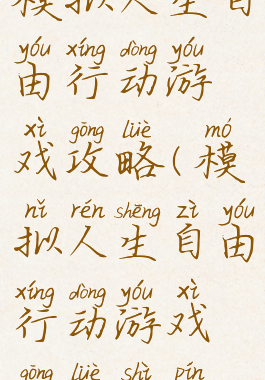 模拟人生自
yóu xíng dòng yóu
由行动游
xì gōng lüè mó
戏攻略(模
nǐ rén shēng zì yóu
拟人生自由
xíng dòng yóu xì
行动游戏
gōng lüè shì pín